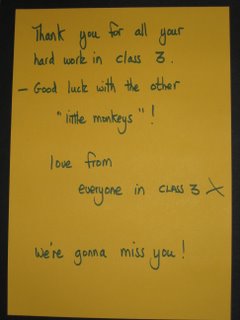 Thank you for all your
hard work in class 3.
- Good luck with the other
"little monkeys"!
love from
everyone in CLASS 3 X
We're gonna miss you!